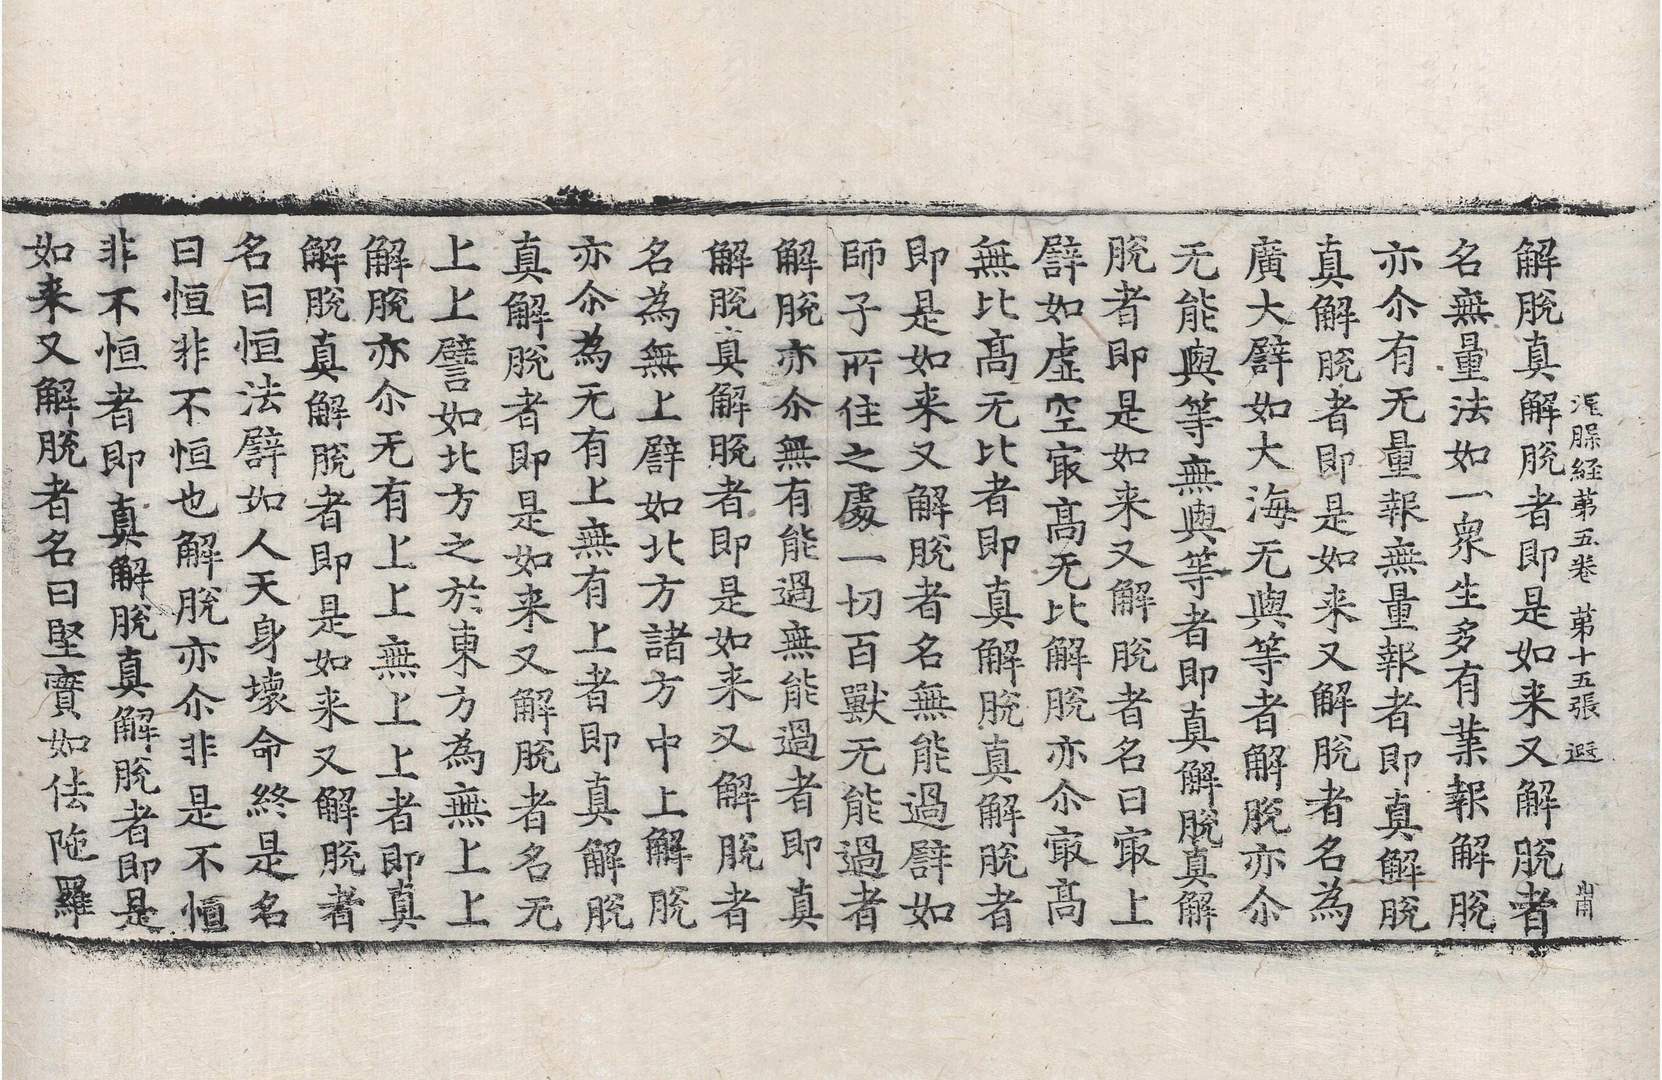 涅槃経苐五卷 苐十五張 遐
解脫真解脫者即是如来又解脫者
名無量法如一衆生多有業報解脫
亦尒有无量報無量報者即真解脫
真解脫者即是如来又解脫者名為
廣大譬如大海无與等者解脫亦尒
无能與等無與等者即真解脫真解
脫者即是如来又解脫者名曰㝡上
譬如虛空㝡髙无比解脫亦尒㝡髙
無比髙无比者即真解脫真解脫者
即是如来又解脫者名無能過譬如
師子所住之處一切百獸无能過者
解脫亦尒無有能過無能過者即真
解脫真解脫者即是如来又解脫者
名為無上譬如北方諸方中上解脫
亦尒為无有上無有上者即真解脫
真解脫者即是如来又解脫者名无
上上譬如北方之於東方為無上上
解脫亦尒无有上上無上上者即真
解脫真解脫者即是如来又解脫者
名曰恒法譬如人天身壞命終是名
曰恒非不恒也解脫亦尒非是不恒
非不恒者即真解脫真解脫者即是
如来又解脫者名曰堅實如佉陁羅